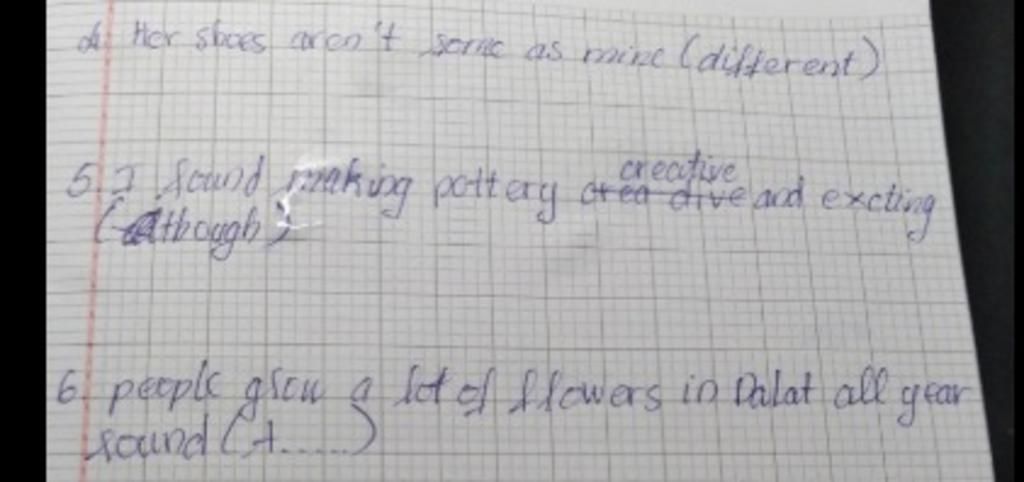 4. Her shoes aren't same as mine (different)
5. I found making pottery creative and excting
(although)
6. people grow a lot of flowers in Dalat all year
round (A......)